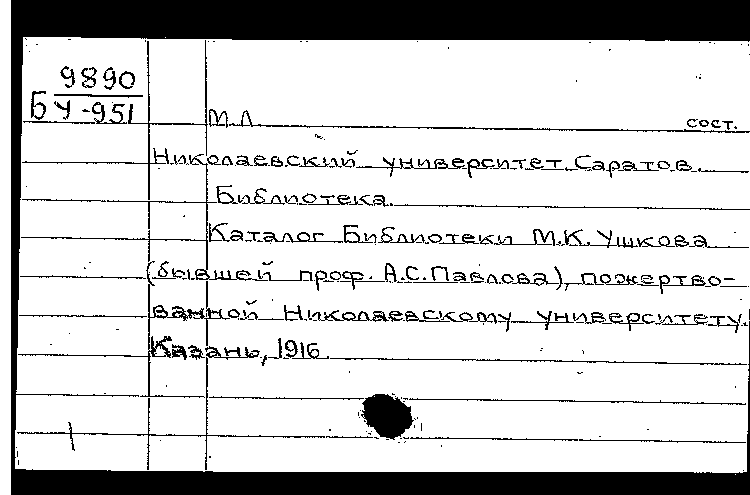 9890
Б У-951
М.Л. сост.
Николаевский университет. Саратов.
Библиотека.
Каталог Библиотеки М.К. Ушкова
(бывшей проф. А.С. Павлова), пожертво-
ванной Николаевскому университету.
Казань, 1916.
1